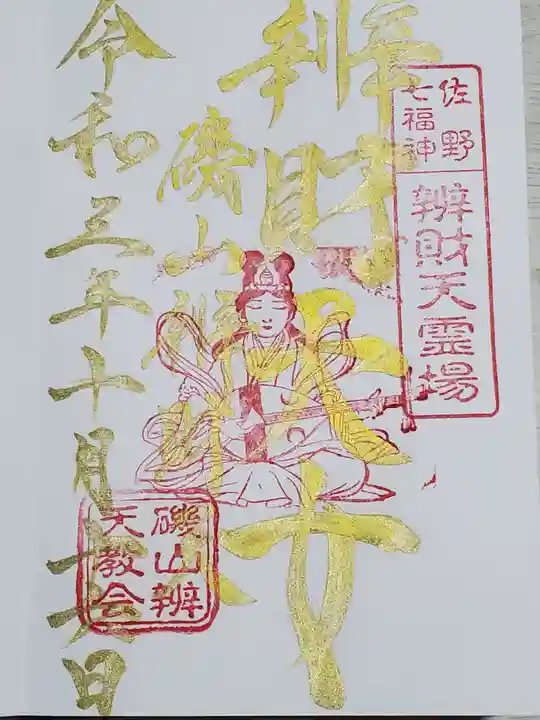 佐野
七福神
辨財天霊場
辨財天
磯山辨財天
令和三年十月十六日
磯山辨
天教会